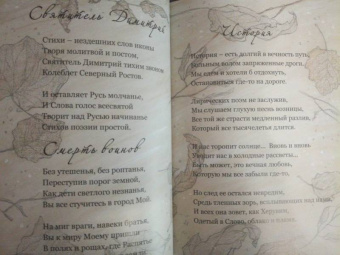 Святитель Димитрий
Стихи – нездешних слов иконы
Творя молитвой и постом,
Святитель Димитрий тихим звоном
Колеблет Северный Ростов.
И оставляет Русь молчанье,
И Слова голос всесвятой
Творит над Русью начинанье
Стихов поэзии простой.
Смерть воинов
Без утешенья, без роптанья,
Переступив порог земной,
Как дети светлого незнанья,
Вы все стучитесь в город Мой.
На миг враги, навеки братья,
Вы к миру Моему пришли
В полях в рощах, где
История
История – есть долгий в вечность путь,
волом запряженные дроги.
Мы слезли и хотели б отдохнуть,
Остановиться где-то на дороге.
Лирических поэм не заслужив,
Мы слушаем глухую песнь возниц,
Все той же страсти медленный разлив,
Который все тысячелетья длится.
И нас торопит солнце... Вновь и вновь
Творит нас в холодные рассветы...
Быть может, это вечная любовь,
Которую мы все забыли где-то.
Но след ее остался невредим,
Средь тленных зорь,
И всех она зовет, как Херувим,
Одетый в Слово,